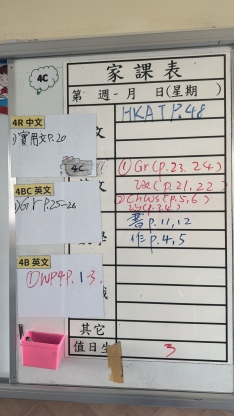 4C
家課表
第 週 - 月 日(星期 )
HKAT P.48
4R 中文
1) 實用文P.20
文
4C
① Gr (P.23, 24)
P.21, 22)
4BC 英文
1) Gr P.25-26
② ChWS (P.5, 6)
書 P.11, 12
作 P.4, 5
4B 英文
① WP4 P.1-3
其它
值日生
3